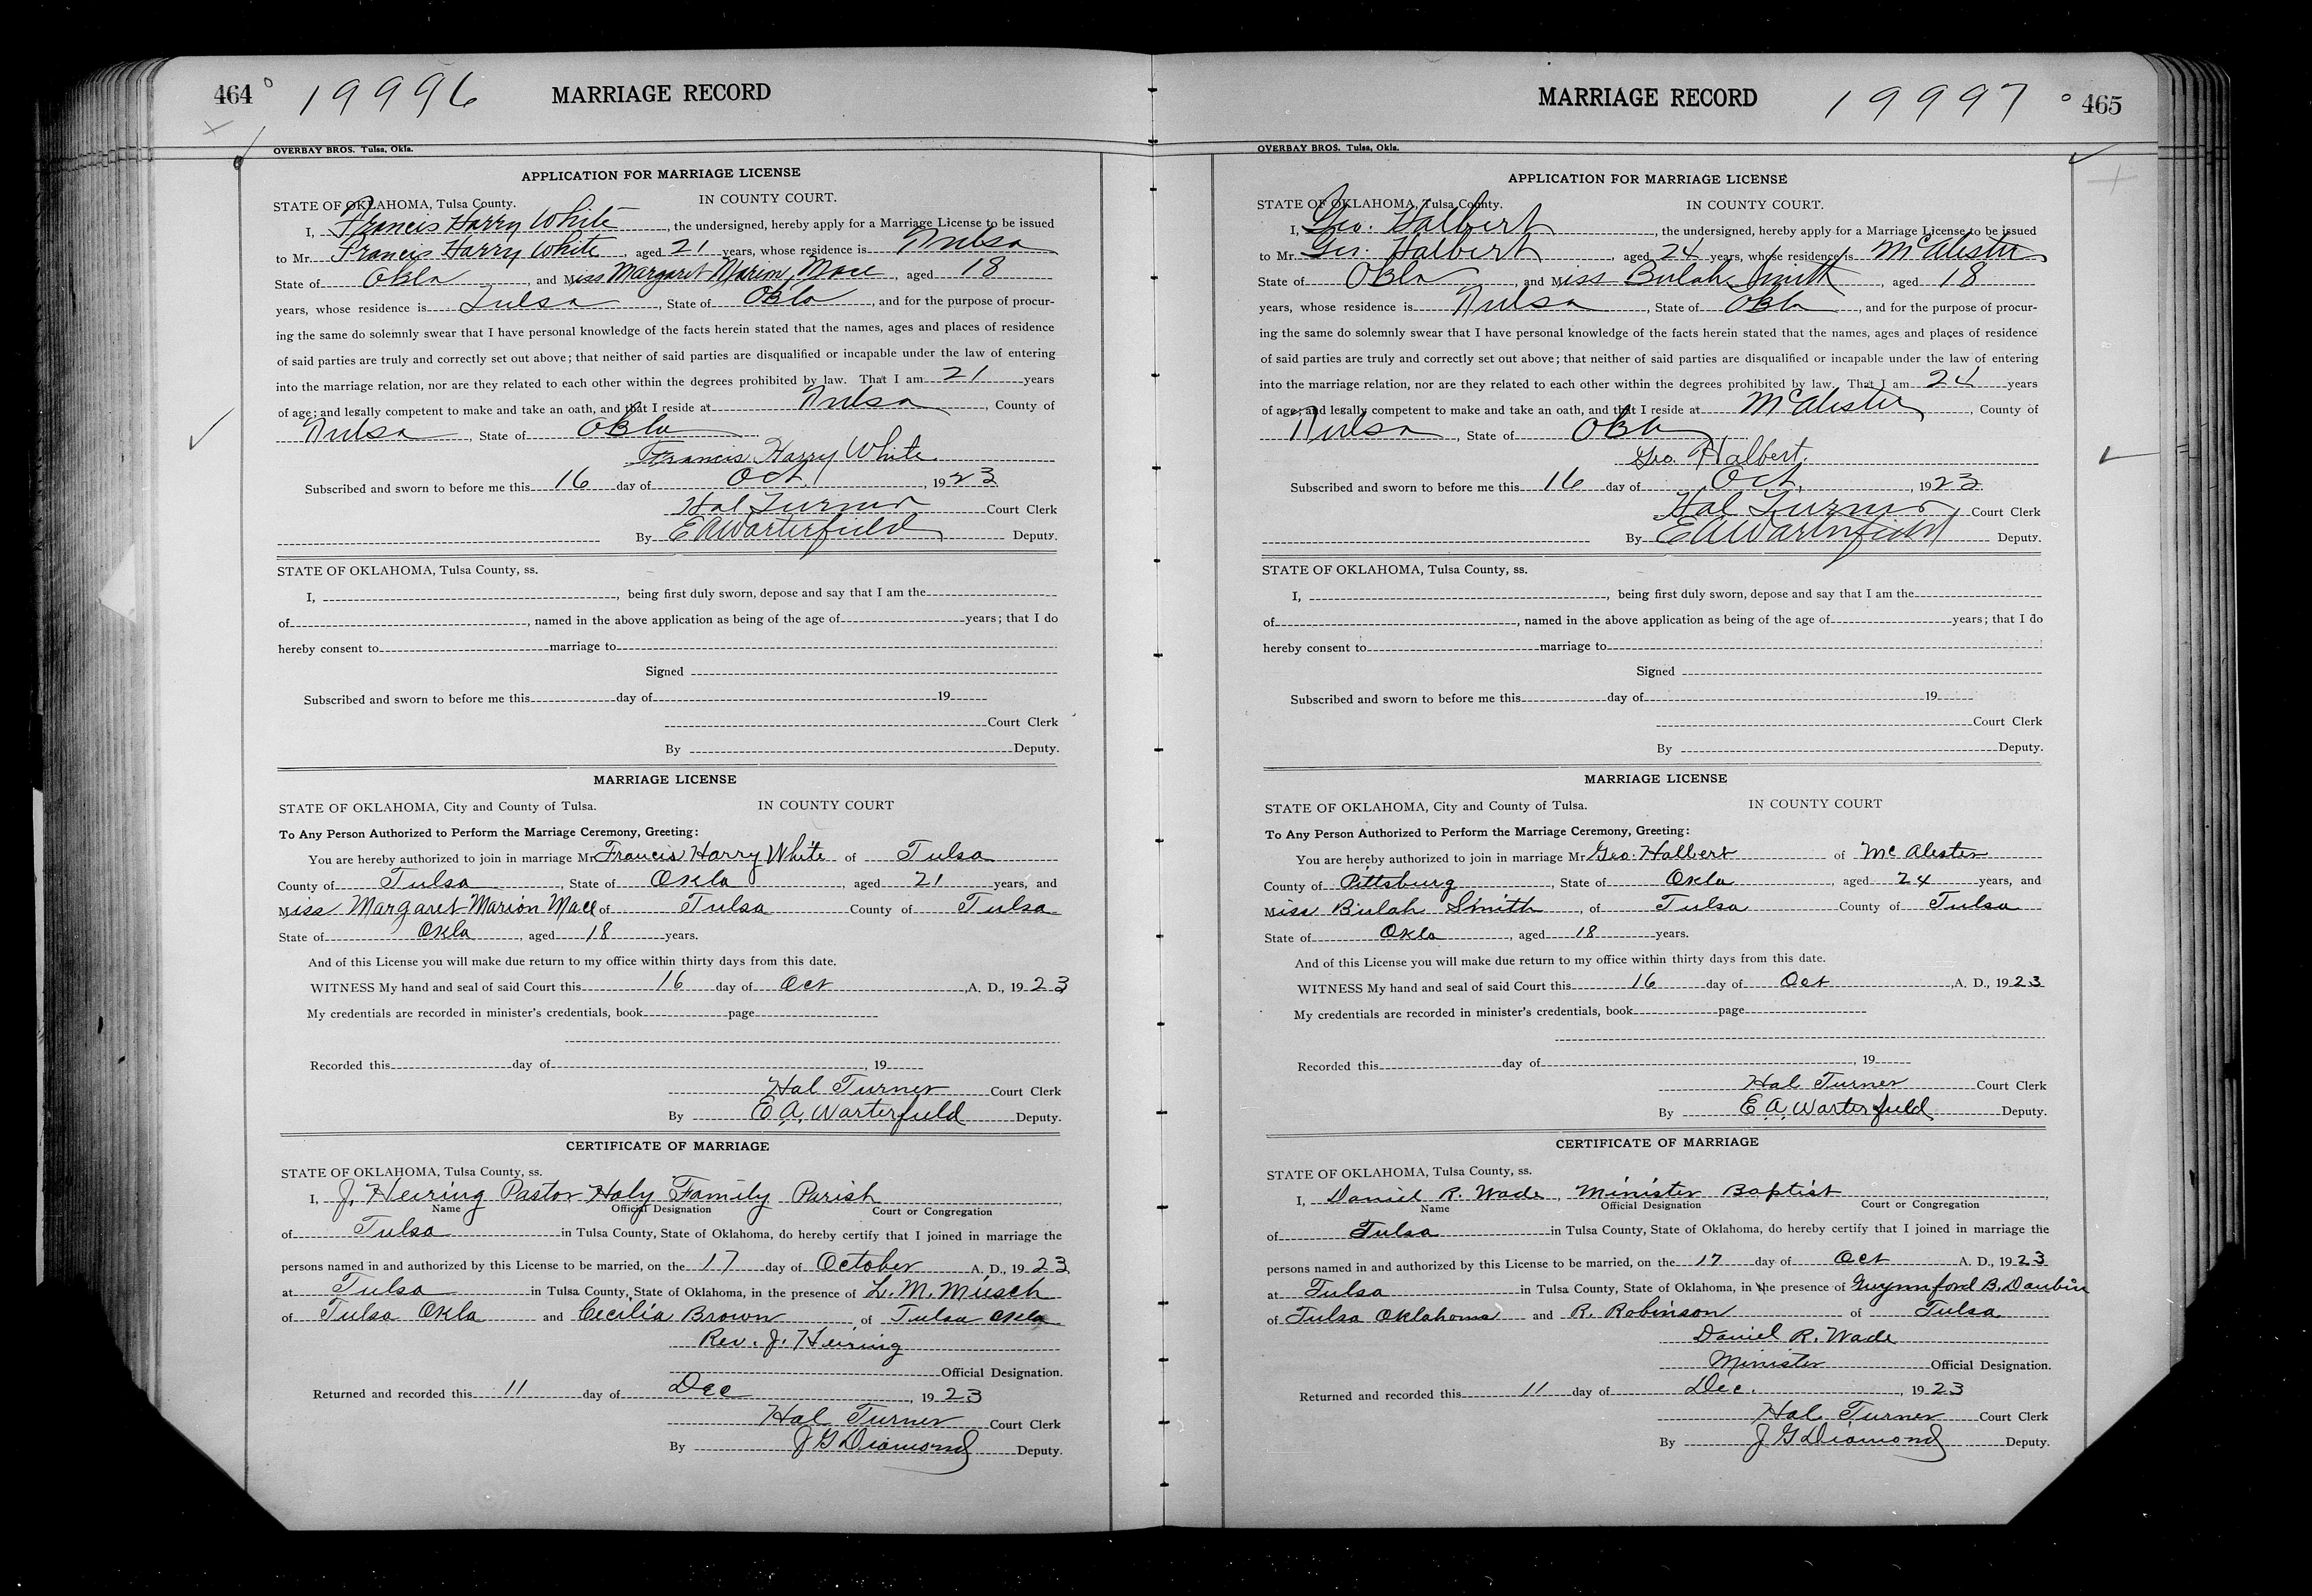 464 19996 MARRIAGE RECORD
OVERBAY BROS. Tulsa, Okla.
APPLICATION FOR MARRIAGE LICENSE
STATE OF OKLAHOMA, Tulsa County. IN COUNTY COURT.
I, Francis Harry White, the undersigned, hereby apply for a Marriage License to be issued
to Mr. Francis Harry White, aged 21 years, whose residence is Tulsa
State of Okla, and Miss Margaret Marion Mace, aged 18
years, whose residence is Tulsa, State of Okla, and for the purpose of procur-
ing the same do solemnly swear that I have personal knowledge of the facts herein stated that the names, ages and places of residence
of said parties are truly and correctly set out above; that neither of said parties are disqualified or incapable under the law of entering
into the marriage relation, nor are they related to each other within the degrees prohibited by law. That I am 21 years
of age; and legally competent to make and take an oath, and that I reside at Tulsa, County of
Tulsa, State of Okla
Francis Harry White
Subscribed and sworn to before me this 16 day of Oct, 1923
Hal Turner Court Clerk
By E A Warterfield Deputy.
STATE OF OKLAHOMA, Tulsa County, ss.
I, , being first duly sworn, depose and say that I am the
of , named in the above application as being of the age of years; that I do
hereby consent to marriage to
Signed
Subscribed and sworn to before me this day of 19
Court Clerk
By Deputy.
MARRIAGE LICENSE
STATE OF OKLAHOMA, City and County of Tulsa. IN COUNTY COURT
To Any Person Authorized to Perform the Marriage Ceremony, Greeting:
You are hereby authorized to join in marriage Mr Francis Harry White of Tulsa
County of Tulsa, State of Okla, aged 21 years, and
Miss Margaret Marion Mace of Tulsa County of Tulsa
State of Okla, aged 18 years.
And of this License you will make due return to my office within thirty days from this date.
WITNESS My hand and seal of said Court this 16 day of Oct, A. D., 1923
My credentials are recorded in minister's credentials, book page
Recorded this day of , 19
Hal Turner Court Clerk
By E. A. Warterfield Deputy.
CERTIFICATE OF MARRIAGE
STATE OF OKLAHOMA, Tulsa County, ss.
I, J. Heiring Pastor Holy Family Parish
Name Official Designation Court or Congregation
of Tulsa in Tulsa County, State of Oklahoma, do hereby certify that I joined in marriage the
persons named in and authorized by this License to be married, on the 17 day of October A. D., 1923
at Tulsa in Tulsa County, State of Oklahoma, in the presence of L. M. Musch
of Tulsa Okla and Cecilia Brown of Tulsa Okla
Rev. J. Heiring
Official Designation.
Returned and recorded this 11 day of Dec, 1923
Hal Turner Court Clerk
By J G Diamond Deputy.
MARRIAGE RECORD 19997 465
OVERBAY BROS. Tulsa, Okla.
APPLICATION FOR MARRIAGE LICENSE
STATE OF OKLAHOMA, Tulsa County. IN COUNTY COURT.
I, Geo. Halbert, the undersigned, hereby apply for a Marriage License to be issued
to Mr. Geo. Halbert, aged 24 years, whose residence is McAlester
State of Okla, and Miss Bulah Smith, aged 18
years, whose residence is Tulsa, State of Okla, and for the purpose of procur-
ing the same do solemnly swear that I have personal knowledge of the facts herein stated that the names, ages and places of residence
of said parties are truly and correctly set out above; that neither of said parties are disqualified or incapable under the law of entering
into the marriage relation, nor are they related to each other within the degrees prohibited by law. That I am 24 years
of age; and legally competent to make and take an oath, and that I reside at McAlester, County of
Tulsa, State of Okla
Geo. Halbert.
Subscribed and sworn to before me this 16 day of Oct., 1923.
Hal Turner Court Clerk
By E A Warterfield Deputy.
STATE OF OKLAHOMA, Tulsa County, ss.
I, , being first duly sworn, depose and say that I am the
of , named in the above application as being of the age of years; that I do
hereby consent to marriage to
Signed
Subscribed and sworn to before me this day of 19
Court Clerk
By Deputy.
MARRIAGE LICENSE
STATE OF OKLAHOMA, City and County of Tulsa. IN COUNTY COURT
To Any Person Authorized to Perform the Marriage Ceremony, Greeting:
You are hereby authorized to join in marriage Mr Geo. Halbert of McAlester
County of Pittsburg, State of Okla, aged 24 years, and
Miss Bulah Smith, of Tulsa County of Tulsa
State of Okla, aged 18 years.
And of this License you will make due return to my office within thirty days from this date.
WITNESS My hand and seal of said Court this 16 day of Oct, A. D., 1923
My credentials are recorded in minister's credentials, book page
Recorded this day of , 19
Hal Turner Court Clerk
By E. A. Warterfield Deputy.
CERTIFICATE OF MARRIAGE
STATE OF OKLAHOMA, Tulsa County, ss.
I, Daniel R. Wade, Minister Baptist
Name Official Designation Court or Congregation
of Tulsa in Tulsa County, State of Oklahoma, do hereby certify that I joined in marriage the
persons named in and authorized by this License to be married, on the 17 day of Oct A. D., 1923
at Tulsa in Tulsa County, State of Oklahoma, in the presence of Gwynnford B. Daubin
of Tulsa Oklahoma and R. Robinson of Tulsa
Daniel R. Wade
Minister Official Designation.
Returned and recorded this 11 day of Dec., 1923
Hal Turner Court Clerk
By J G Diamond Deputy.